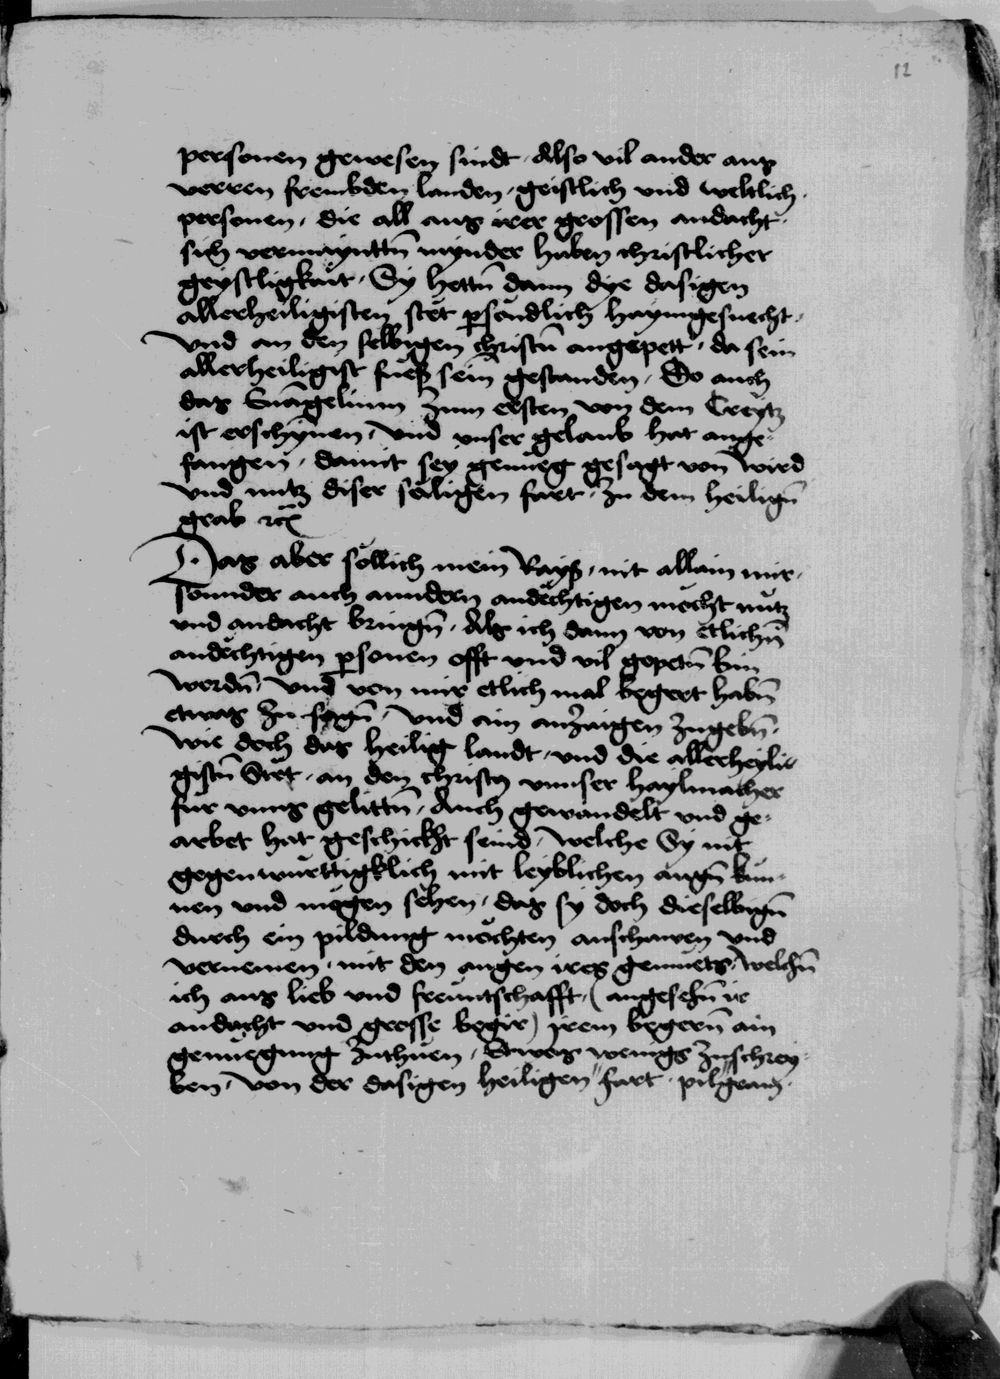 12
personen gewesen sindt · Also vil ander aus
verren frembden landen · geistlich vnd weltlich ·
personen · die all aus irer grossen andacht ·
sich vermainttn̄ mynder haben christlicher
geystligkait · Sy hettn̄ dann dye dasigen
allerheiligisten stet ꝑsöndlich haymgesuecht ·
Vnd an den selbigen christū angepett · da sein
allerheiligist fueß sein gestanden · So auch
das Euāgelium Zum ersten von dem Creytz
ist erschynen · Vnd vnser gelaub hat ange-
fangen · damit sey genueg gesagt von wird
vnd nutz diser säligen fart · Zu dem heilign̄
grab ꝛc̄
Das aber söllich mein Rayß · nit allain mir ·
sonnder auch anndern andëchtigen möcht nutz
vnd andacht bringn̄ · Als ich dann von etlichn̄
andëchtigen ꝑsonen offt vnd vil gepetn̄ bin
wordn̄ · Vnd von mir etlich mal begert habn̄
etwas Zu sagn̄ · Vnd ain anZaigen Zugebn̄ ·
Wie doch das heilig landt · vnd die allerheyli-
gistn̄ Stet · an den christus vnnser haylmacher
für vnns gelittn̄ · Auch gewandelt vnd ge-
arbet hat geschickht seind · welche Sy nit
gegenwurttigklich mit leyblichen augn̄ kün-
nen vnd mögen sehen · das sy doch dieselbign̄
durch ein pildung möchten anschawen vnd
vernemen · mit den augen ires gemüets · Welchn̄
ich aus lieb vnd freüntschafft · (angesehn̄ ir
andacht vnd grosse begir) irem begern̄ ain
genüegung Zuthuen · Etwas wenigs Zuschrey-
ben · Von der dasigen heiligen fart · pilgram ·